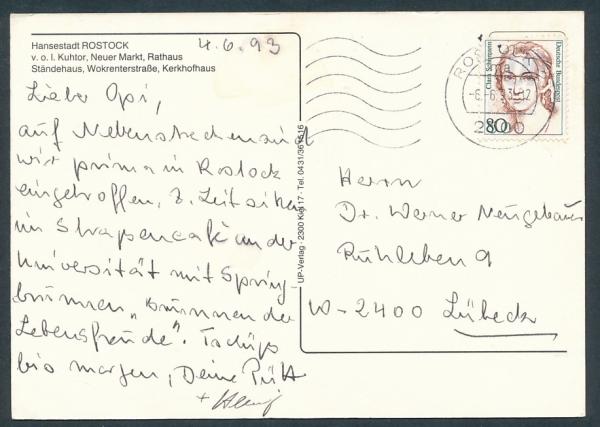 Hansestadt ROSTOCK
v. o. l. Kuhtor, Neuer Markt, Rathaus
Ständehaus, Wokrenterstraße, Kerkhofhaus
4.6.93
Lieber Opi,
auf Nebenstrecken sind
wir prima in Rostock
eingetroffen, z. Zeit sitzen
im Strapencafé an der
Universität mit Spring-
brunnen „Brunnen der
Lebensfreude". Tschüß
bis morgen, Deine
+
UP-Verlag · 2300 Kiel 17 · Tel. 0431/36
Deutsche Bundespost
Clara Schumann
80
ROSTOCK
-6.-6.93-12
2500
Herrn
Dr. Werner Neugebauer
Ruhleben 9
W-2400 Lübeck